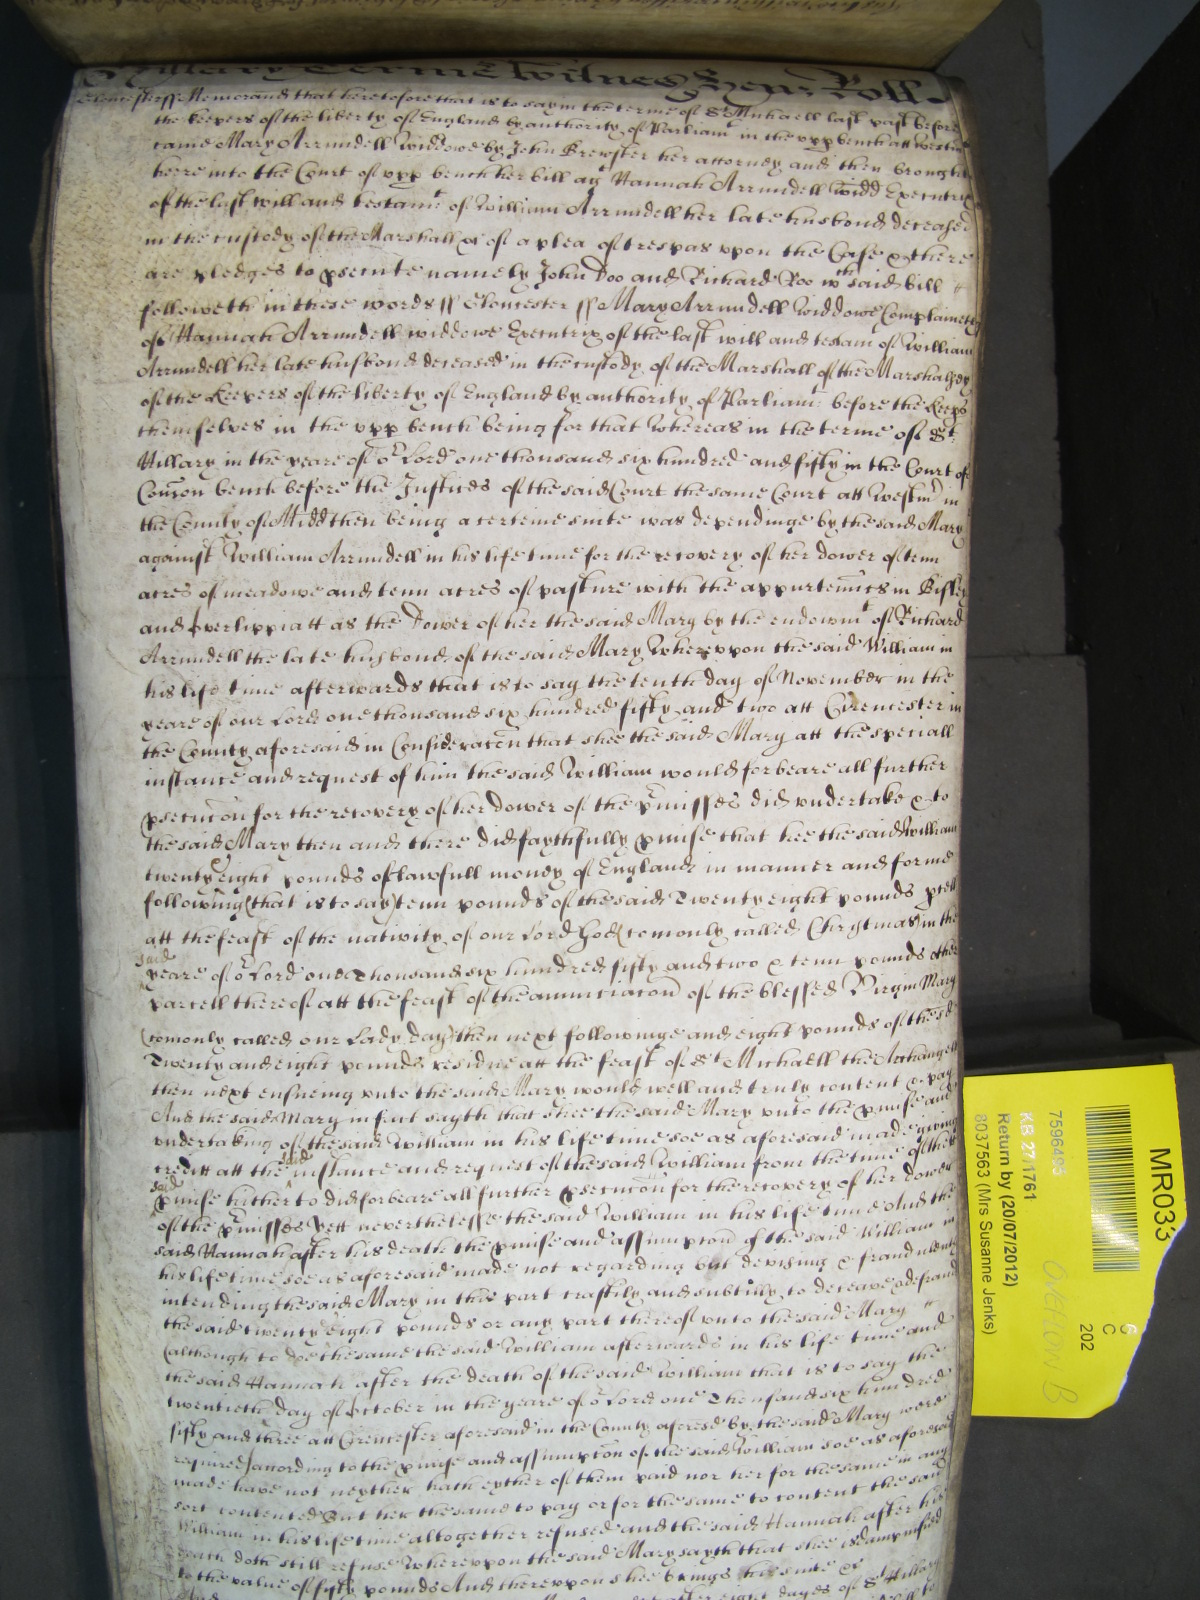 Hillary Terme Witnes Hen: Roll.
Gloucester ss Memorand that heretofore that is to say in the terme of St Michaell last past before
the keepers of the liberty of England by authority of Parliamt in the upp bench att Westm
came Mary Arrundell Widdowe by John Brewster her attorney and then brought
heere into the Court of upp bench her bill agt Hannah Arrundell widd Executrix
of the last will and testamt of William Arrundell her late husband deceased
in the custody of the Marshall &c of a plea of trespas upon the Case & there
are pledges to psecute namely John Doo and Richard Roo wch said bill
followeth in these words ss Gloucester ss Mary Arrundell Widdowe Complaineth
of Hannah Arrundell widdowe Executrix of the last will and testam of William
Arrundell her late husband deceased in the custody of the Marshall of the Marshalsey
of the Keepers of the liberty of England by authority of Parliamt before the keeps
themselves in the upp bench being for that Whereas in the terme of St
Hillary in the yeare of or Lord one thousand six hundred and fifty in the Court of
Comon bench before the Justices of the said Court the same Court att Westm in
the County of Midd then being a certeine suite was dependinge by the said Mary
against William Arrundell in his life time for the recovery of her dower of tenn
acres of meadowe and tenn acres of pasture with the appurtenncs in Bisley
and Overlippiatt as the Dower of her the said Mary by the endowmt of Richard
Arrundell the late husband of the said Mary Whereupon the said William in
his life time afterwards that is to say the tenth day of November in the
yeare of our Lord one thousand six hundred fifty and two att Cirencester in
the County aforesaid in Consideracon that shee the said Mary att the speciall
instance and request of him the said William would forbeare all further
psecucon for the recovery of her dower of the pmisses did undertake & to
the said Mary then and there did faythfully pmise that hee the said William
twenty eight pounds of lawfull money of England in manner and forme
following (that is to say) tenn pounds of the said Twenty eight pounds pcell
att the feast of the nativity of our Lord God (comonly called Christmas) in the
said
yeare of or Lord one Thousand six hundred fifty and two & tenn pounds other
parcell thereof att the feast of the annunciacon of the blessed Virgin Mary
(comonly called our Lady day) then next followinge and eight pounds of the sd
Twenty and eight pounds residue att the feast of St Michaell the Archangell
then next ensueing unto the said Mary would well and truly content & pay
And the said Mary in fact sayth that shee the said Mary unto the pmise and
undertaking of the said William in his life time soe as aforesaid made giving
creditt att the said instance and request of the said William from the time of the
said
pmise hitherto did forbeare all further psecucon for the recovery of her dower
of the pmisses Yett neverthelesse the said William in his life time And the
said Hannah after his death the pmise and assumpcon of the said William in
his life time soe as aforesaid made not regarding but devising & fraudulently
intending the said Mary in this part craftily and subtilly to deceave & defraud
the said twenty eight pounds or any part thereof unto the said Mary
(although to doe the same the said William afterwards in his life time and
the said Hannah after the death of the said William that is to say the
twentieth day of October in the yeare of or Lord one Thousand six hundred
fifty and three att Cirencester aforesaid in the County aforesd by the said Mary were
required) according to the pmise and assumpcon of the said William soe as aforesaid
made have not neyther hath eyther of them paid nor her for the same in any
sort contented But her the same to pay or for the same to content the said
William in his life time altogether refused and the said Hannah after his
death doth still refuse Whereupon the said Mary sayth that shee is dampnified
to the value of fifty pounds And thereupon shee brings her suite &c
eight dayes of St Hillary
MR033
6
C
202
7596495
KB 27/1761
Return by (20/07/2012)
8037563 (Mrs Susanne Jenks)
Overflow B